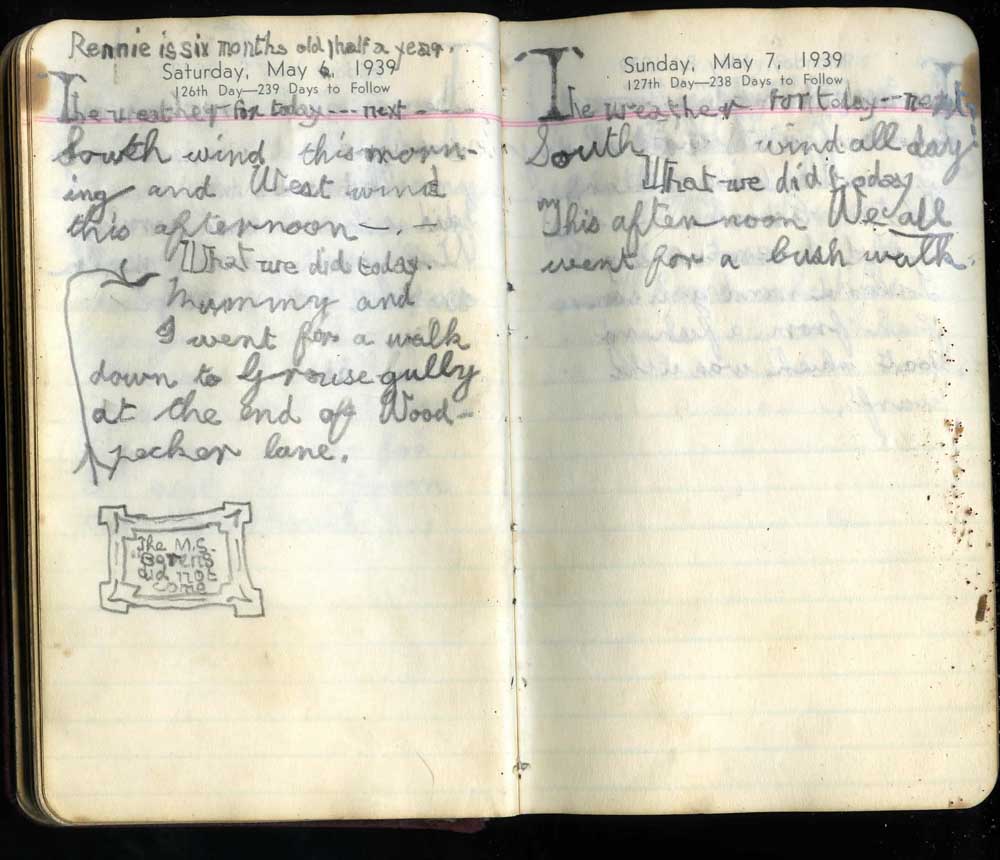 Rennie is six months old half a year.
Saturday, May 6, 1939
126th Day—239 Days to Follow
The weather for today --- next -
South wind this morn-
ing and West wind
this afternoon —. —
What we did today.
Mummy and
I went for a walk
down to Grouse gully
at the end of Wood-
pecker lane.
The M.S.
did not
come
Sunday, May 7, 1939
127th Day—238 Days to Follow
The weather for today -- next,
South wind all day
What we did today
This afternoon We all
went for a bush walk.